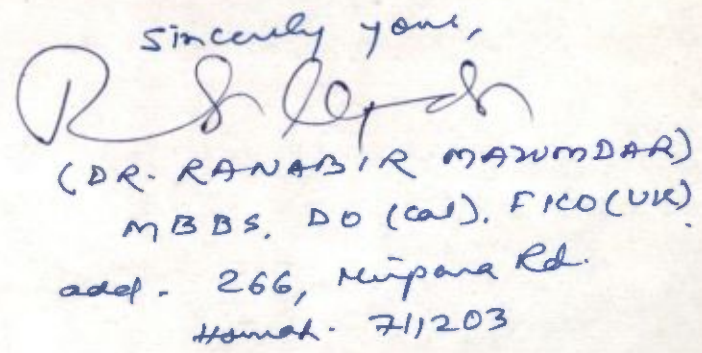 Sincerely yours,
(DR. RANABIR MAZUMDAR)
MBBS, DO (Cal), FICO (UK).
add - 266, Mirpara Rd.
Howrah - 711203